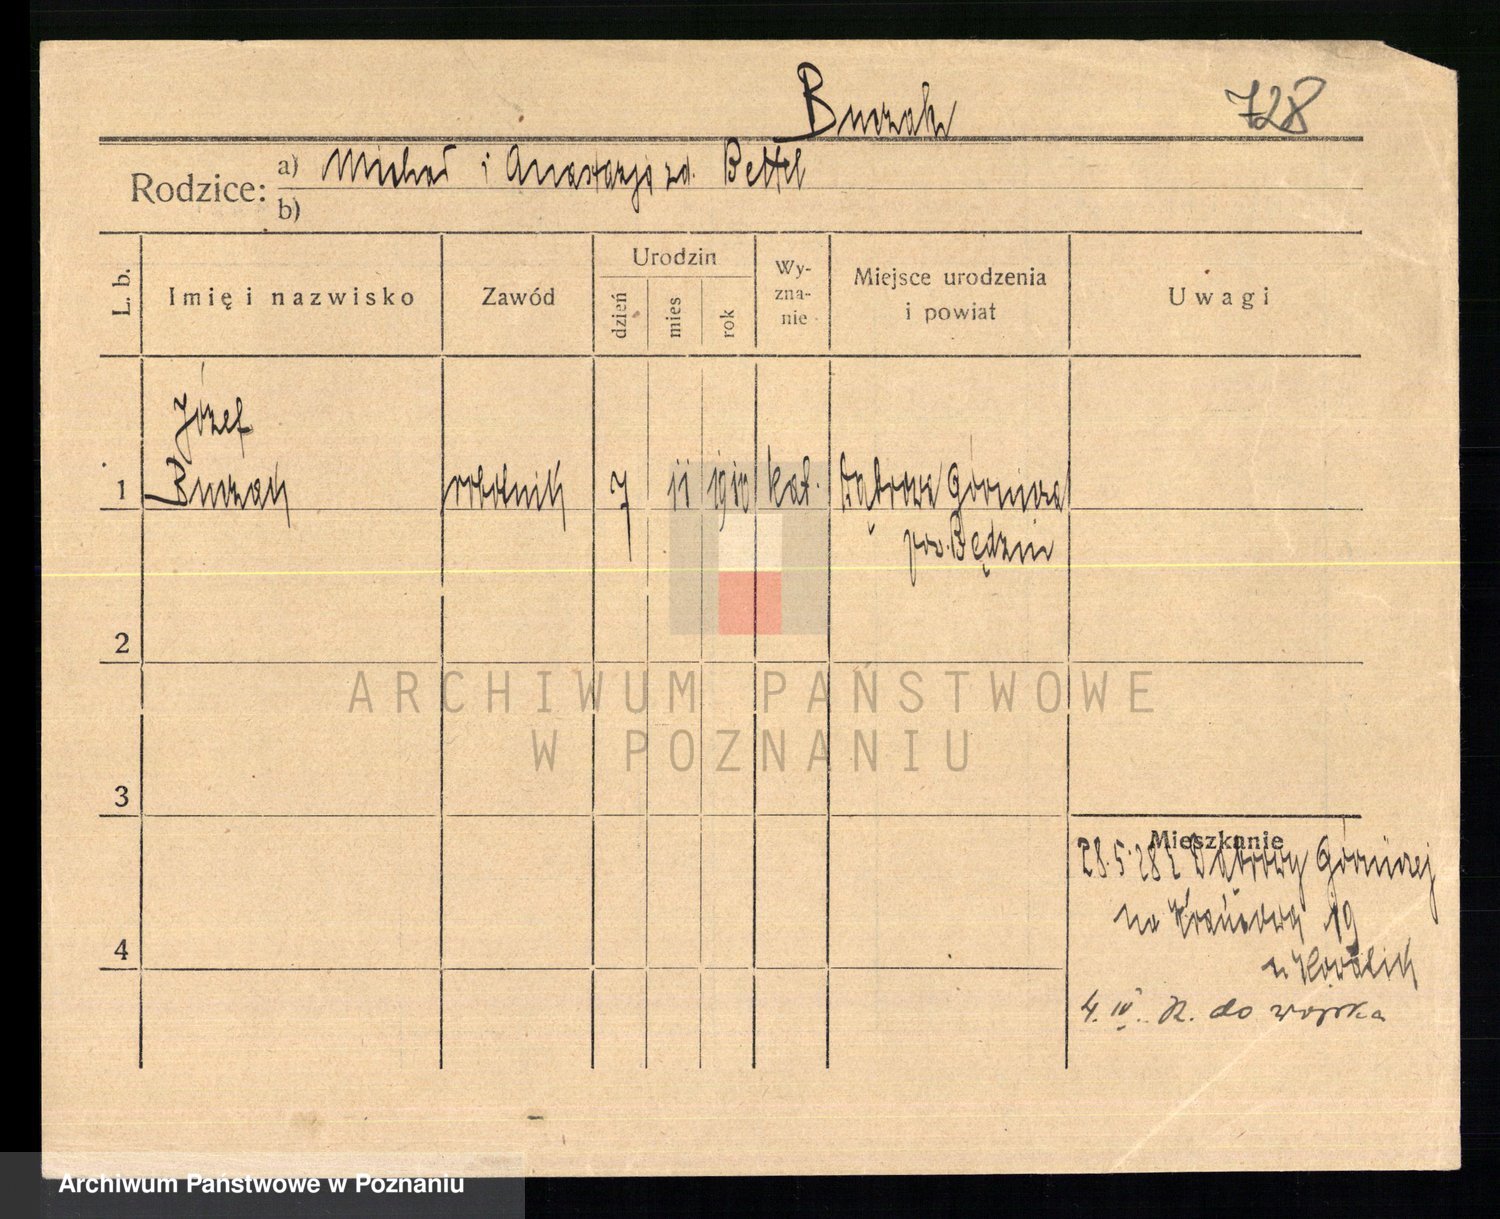 Buczak
728
Rodzice:
a) Michał i Anastazja zd. Bettel
b)
L. b.
Imię i nazwisko
Zawód
Urodzin
dzień
mies
rok
Wy-
zna-
nie
Miejsce urodzenia
i powiat
Uwagi
Józef
1 Buczak robotnik 7 11 1910 kat. Dąbrowa Górnicza
pow. Będzin
2
ARCHIWUM PAŃSTWOWE
W POZNANIU
3
Mieszkanie
28.5.28 z Dąbrowy Górniczej
na 19
u
4
4. IV. do wojska
Archiwum Państwowe w Poznaniu